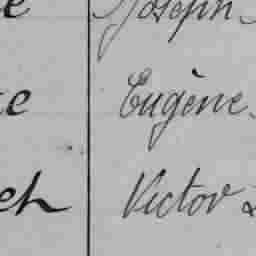 e Joseph
e Eugène
ch Victor